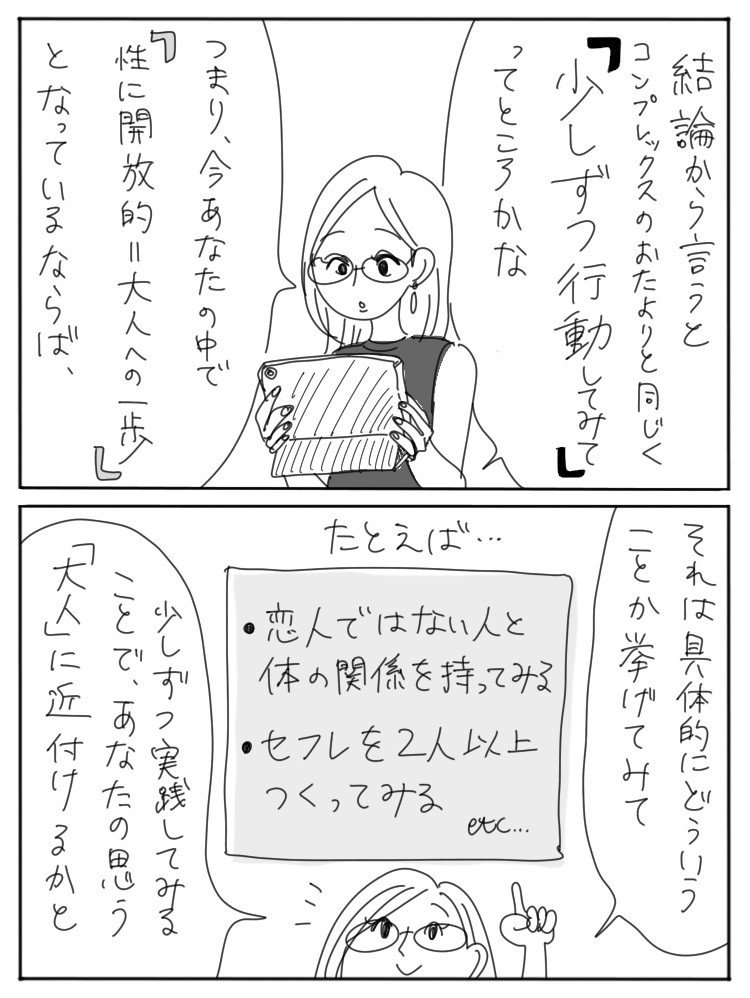 結論から言うと
コンプレックスのおたよりと同じく
『少しずつ行動してみて』
ってところかな
つまり、今あなたの中で
『性に開放的=大人への一歩』
となっているならば、
それは具体的にどういう
ことか挙げてみて
たとえば…
• 恋人ではない人と
体の関係を持ってみる
• セフレを2人以上
つくってみる
etc...
少しずつ実践してみる
ことで、あなたの思う
「大人」に近付けるかと